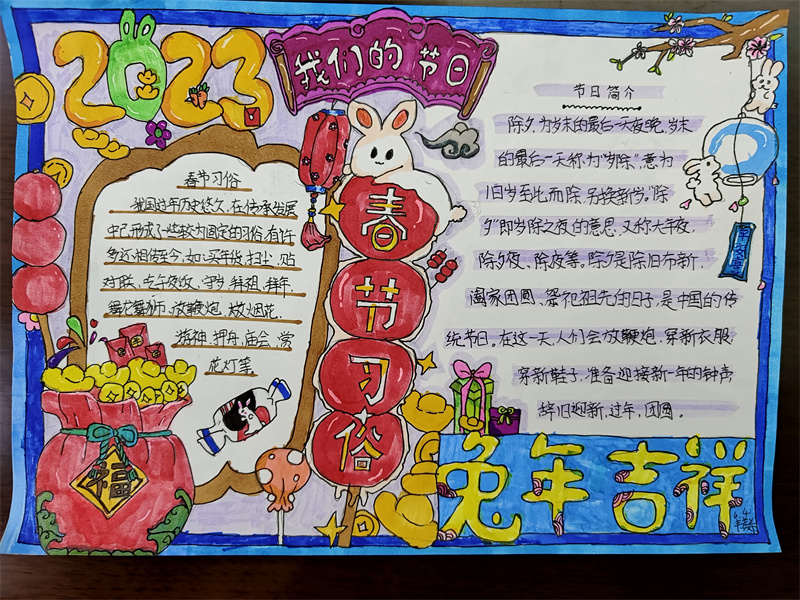 2023
我们的节日
春节习俗
我国过年历史悠久,在传承发展
中已形成一些较为固定的习俗,有许
多还相传至今,如:买年货、扫尘、贴
对联、吃年夜饭、守岁、拜祖、拜年、
舞龙舞狮、放鞭炮、烧烟花、
游神、押舟、庙会、赏
花灯等
福
春节习俗
节日简介
除夕,为岁末的最后一天夜晚,岁末
的最后一天称为"岁除",意为
旧岁至此而除,另换新岁。"除
夕"即岁除之夜的意思,又称大年夜,
除夕夜、除夜等。除夕是除旧布新,
阖家团圆、祭祀祖先的日子,是中国的传
统节日。在这一天,人们会放鞭炮、穿新衣服,
穿新鞋子,准备迎接新一年的钟声
辞旧迎新,过年,团圆。
兔年吉祥